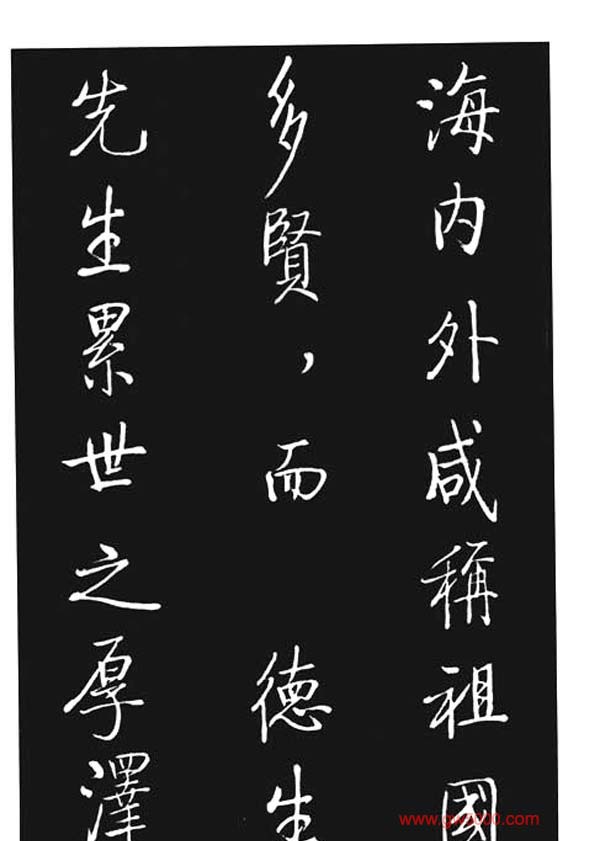 海内外咸稱祖國
多賢，而 德生
先生累世之厚澤
www.gwz000.com